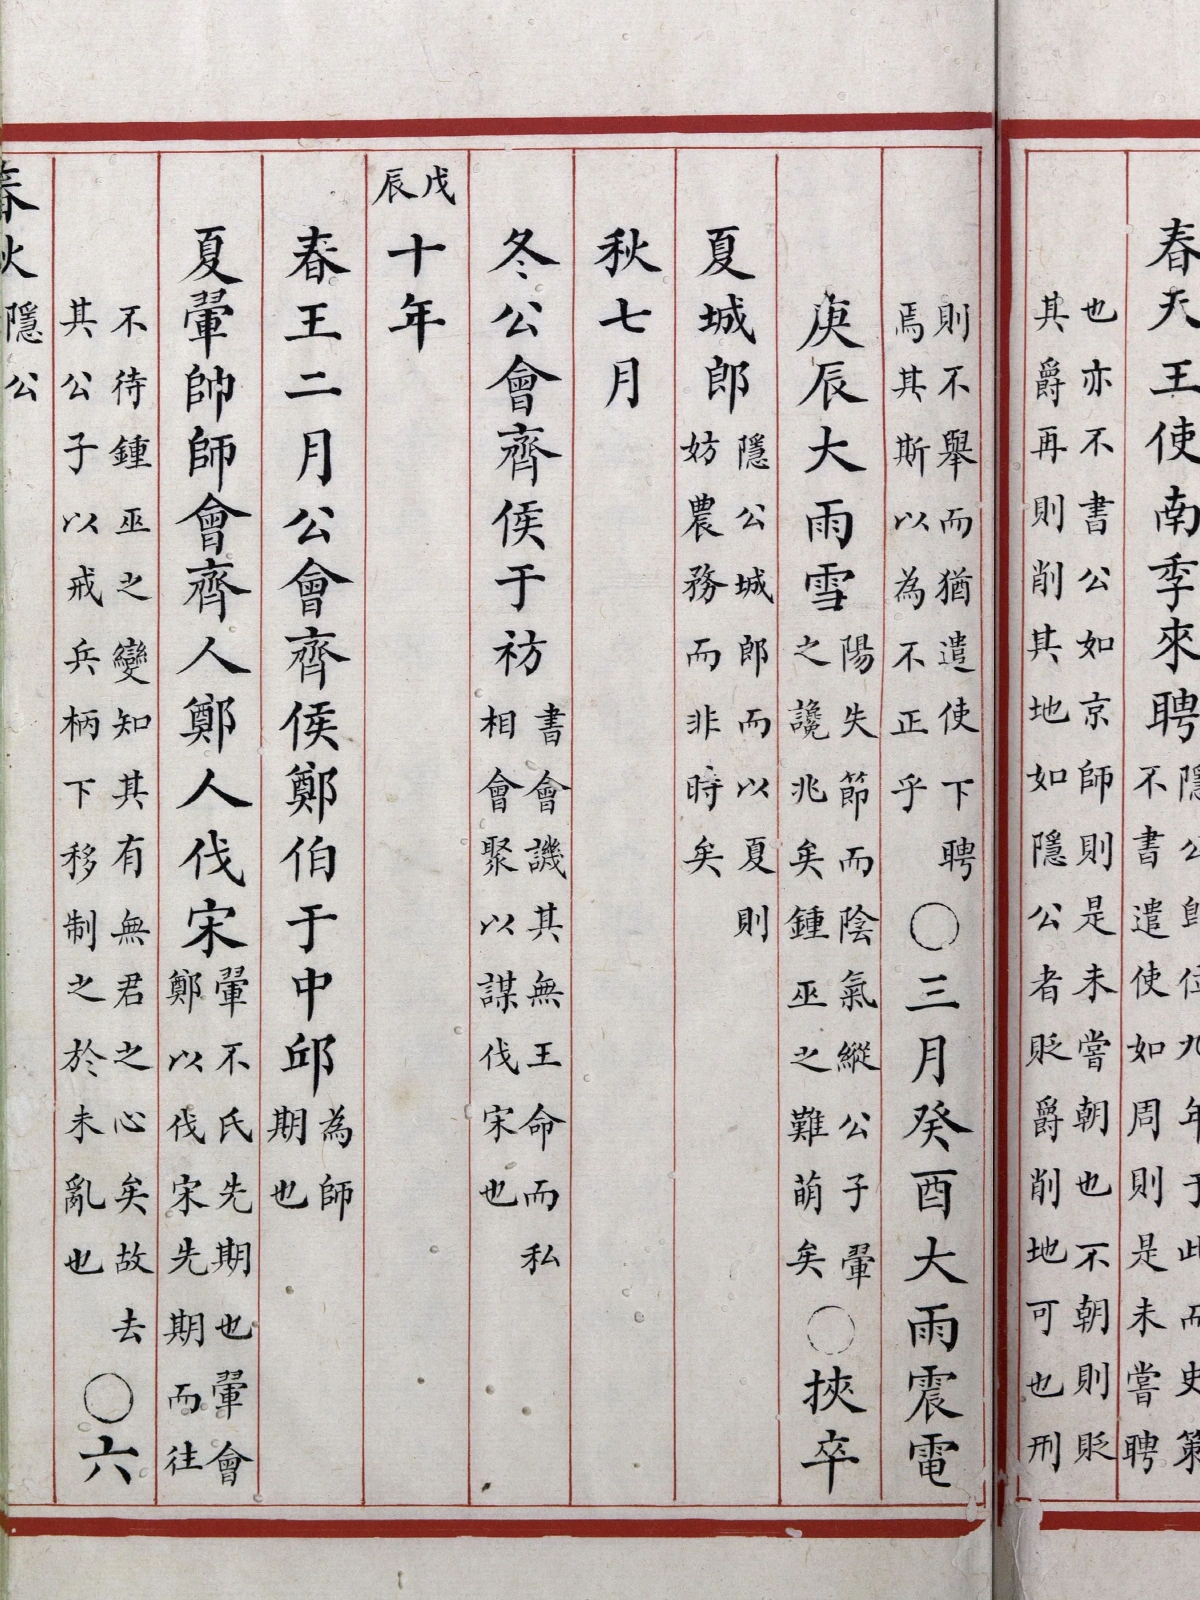 春天王使南季來聘
隱公即位九年于此而史策
不書遣使如周則是未嘗聘
也亦不書公如京師則是未嘗朝也不朝則貶
其爵再則削其地如隱公者貶爵削地可也刑
則不舉而猶遣使下聘
焉其斯以為不正乎
○三月癸酉大雨震電
庚辰大雨雪
陽失節而陰氣縱公子翬
之讒兆矣鍾巫之難萌矣
○挾卒
夏城郎
隱公城郎而以夏則
妨農務而非時矣
秋七月
冬公會齊侯于祊
書會譏其無王命而私
相會聚以謀伐宋也
戊辰
十年
春王二月公會齊侯鄭伯于中邱
為師
期也
夏翬帥師會齊人鄭人伐宋
翬不氏先期也翬會
鄭以伐宋先期而往
不待鍾巫之變知其有無君之心矣故去
其公子以戒兵柄下移制之於未亂也
○六
春秋
隱公